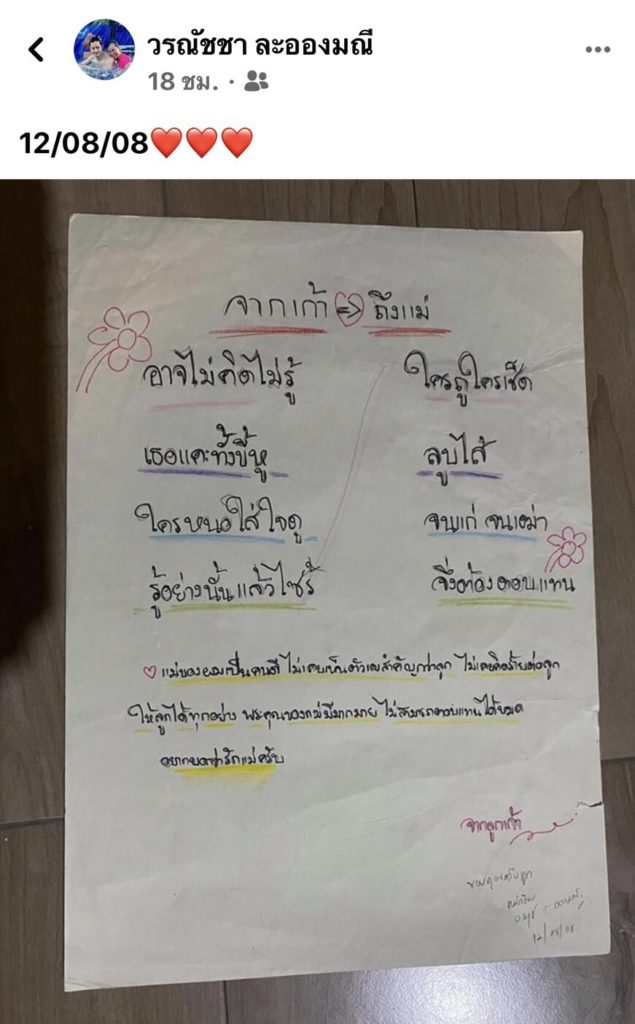 วรณัชชา ละอองมณี
18 ชม. ·
12/08/08❤️❤️❤️
จากเก้า => ถึงแม่
อาจไม่คิดไม่รู้ ใครถูใครเช็ด
เธอแคะทั้งขี้หู ลูบไส้
ใครหนอใส่ใจดู จนแก่ จนเฒ่า
รู้อย่างนั้นแล้วไซร้ จึงต้องตอบแทน
♡ แม่ของผมเป็นคนดี ไม่เคยเห็นตัวเองสำคัญกว่าลูก ไม่เคยคิดร้ายต่อลูก
ให้ลูกได้ทุกอย่าง พระคุณของแม่มีมากมาย ไม่สามารถตอบแทนได้หมด
อยากบอกว่ารักแม่ครับ
จากลูกเก้า
ขอบคุณครับลูก
12/08/08